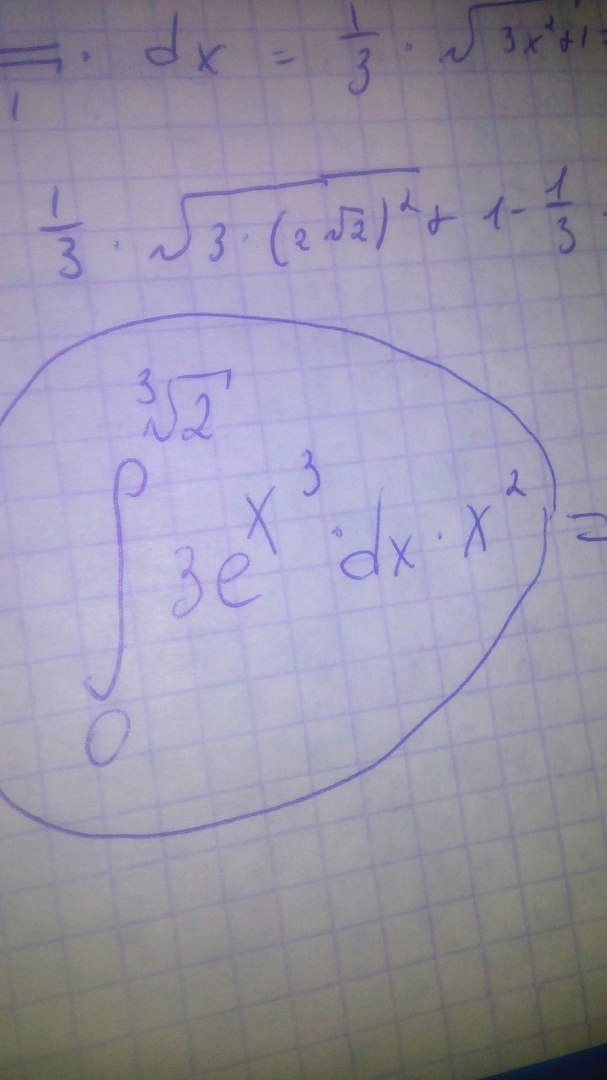 1 · dx = 1/3 · √3x²+1 =
1/3 · √3·(2√2)² + 1 - 1/3 ·
∫₀^∛2 3e^x³ · dx · x² =